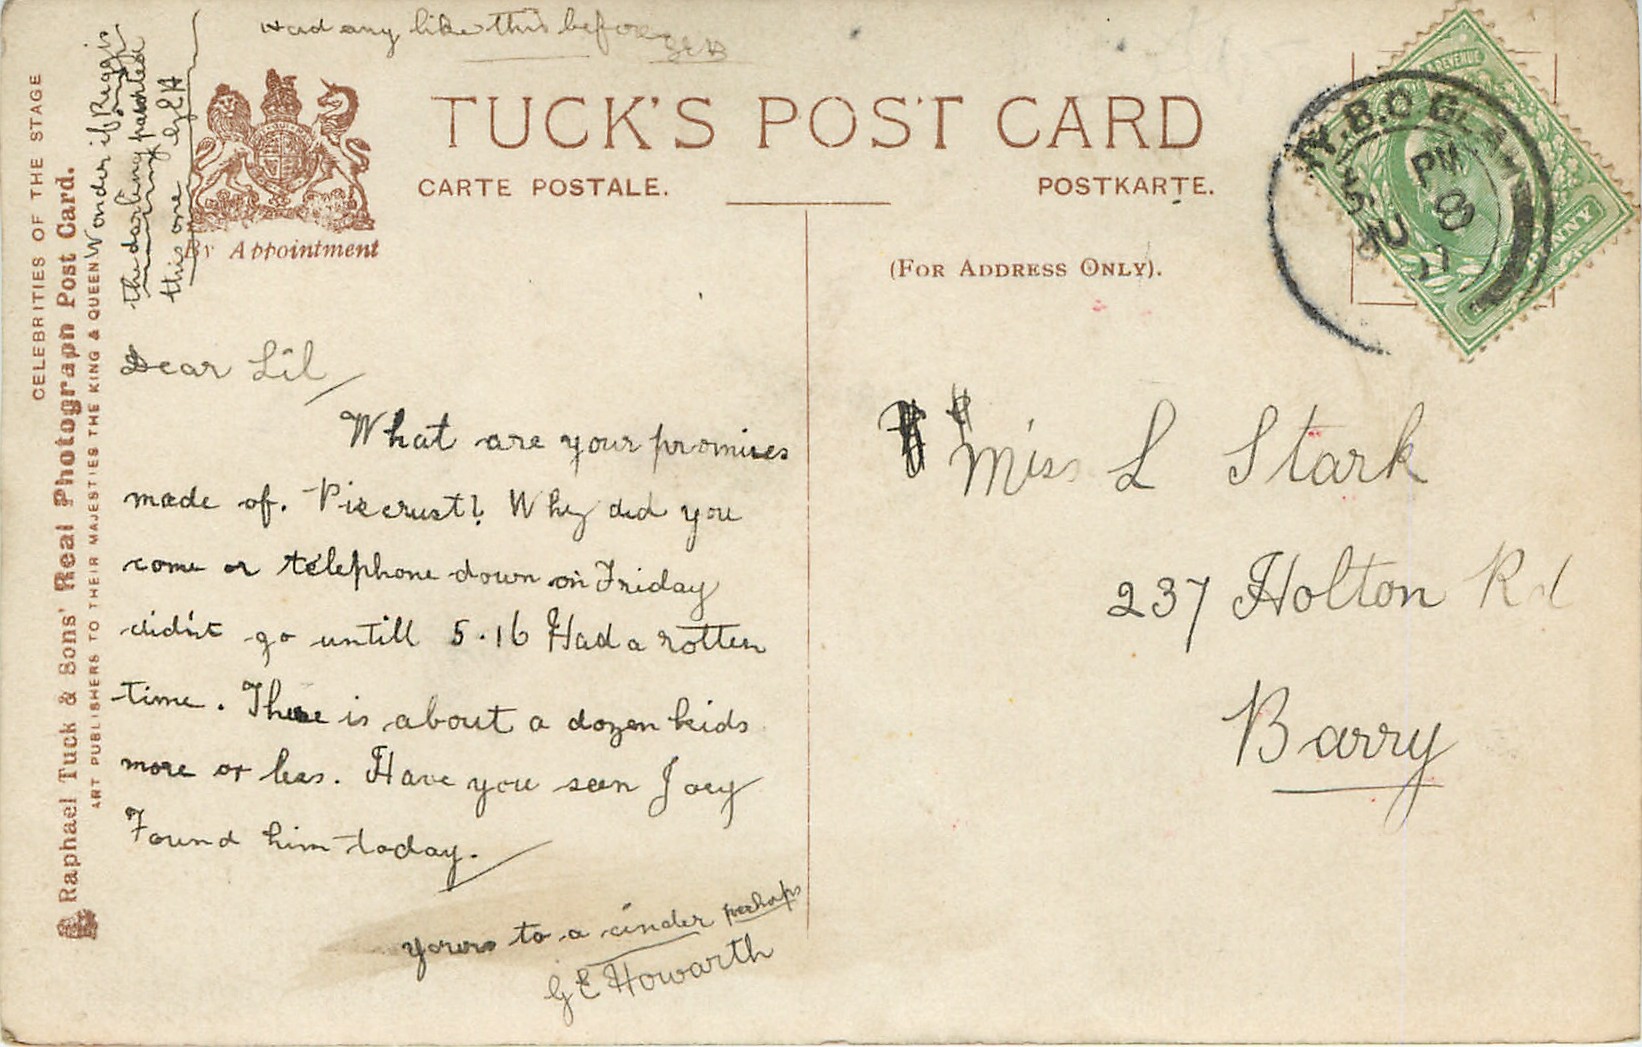 Had any like this before
GEH
TUCK'S POST CARD
CARTE POSTALE.
POSTKARTE.
By Appointment
(FOR ADDRESS ONLY).
CELEBRITIES OF THE STAGE
Raphael Tuck & Sons' "Real Photograph Post Card.
ART PUBLISHERS TO THEIR MAJESTIES THE KING & QUEEN
Wonder if Reggie
the darling
this one GEH
Dear Lil
What are your promises
made of. Piecrust? Why did you
come or telephone down on Friday
didn't go untill 5.16 Had a rotten
time. There is about a dozen kids
more or less. Have you seen Joey
Found him today.
yours to a cinder perhaps
GE Howarth
Miss L Stark
237 Holton Rd
Barry
REVENUE
PENNY
PM
8